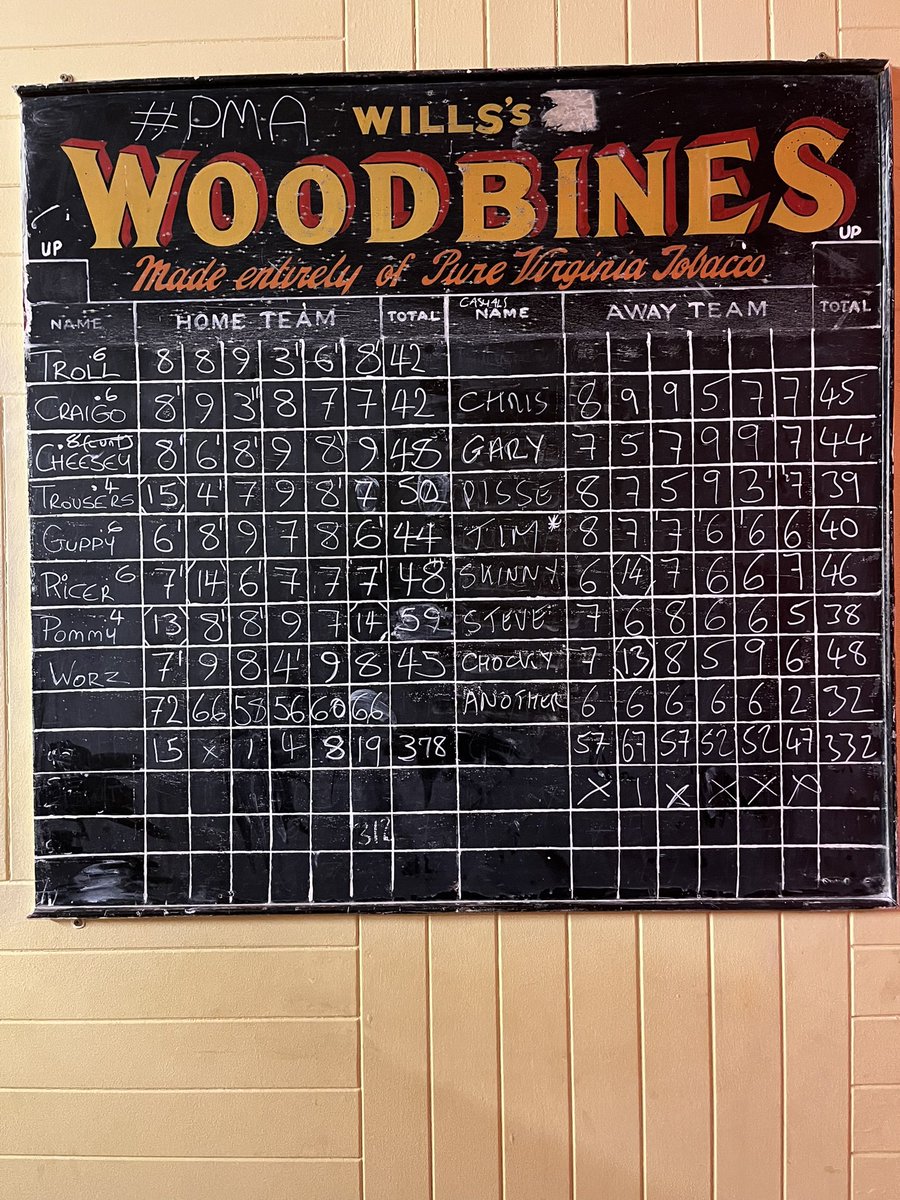 #PMA WILLS'S
WOODBINES
UP UP
Made entirely of Pure Virginia Tobacco
NAME HOME TEAM TOTAL CASUALS NAME AWAY TEAM TOTAL
TROLL 6 8 8 9 3" 6' 8' 42
CRAIGO .6 8' 9 3" 8 7 7 42 CHRIS 8 9 9 5 7 7 45
CHEESEY .8 (CUNT) 8' 6' 8' 9 8' 9 48 GARY 7 5 7 9 9 7 44
TROUSERS .4 15 4' 7 9 8' 7 50 DISSE 8 7 5 9 3' 7 39
GUPPY 6 6' 8' 9 7 8 6' 44 TIM* 8 7 7 6 6 6 40
RICER 6 7' 14 6' 7 7 7' 48 SKINNY 6 14 7 6 6 7 46
POMMY 4 13 8' 8' 9 7 14 59 STEVE 7 6 8 6 6 5 38
WORZ 7' 9 8 4' 9 8 45 CHOCKY 7 13 8 5 9 6 48
72 66 58 56 60 66 ANOTHER 6 6 6 6 6 2 32
15 x 1 4 8 19 378 57 67 57 52 52 47 332
x 1 x x x x
312